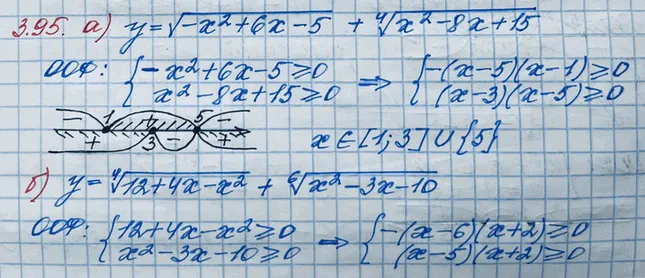 3.95. а) y=√(-x²+6x-5) + ⁴√(x²-8x+15)
ООФ: { -x²+6x-5⩾0 ⇒ { -(x-5)(x-1)⩾0
x²-8x+15⩾0 (x-3)(x-5)⩾0
- 1 + 5 -
+ 3 - +
x∈[1;3]∪{5}
б) y=⁴√(12+4x-x²) + ⁶√(x²-3x-10)
ООФ: { 12+4x-x²⩾0 ⇒ { -(x-6)(x+2)⩾0
x²-3x-10⩾0 (x-5)(x+2)⩾0